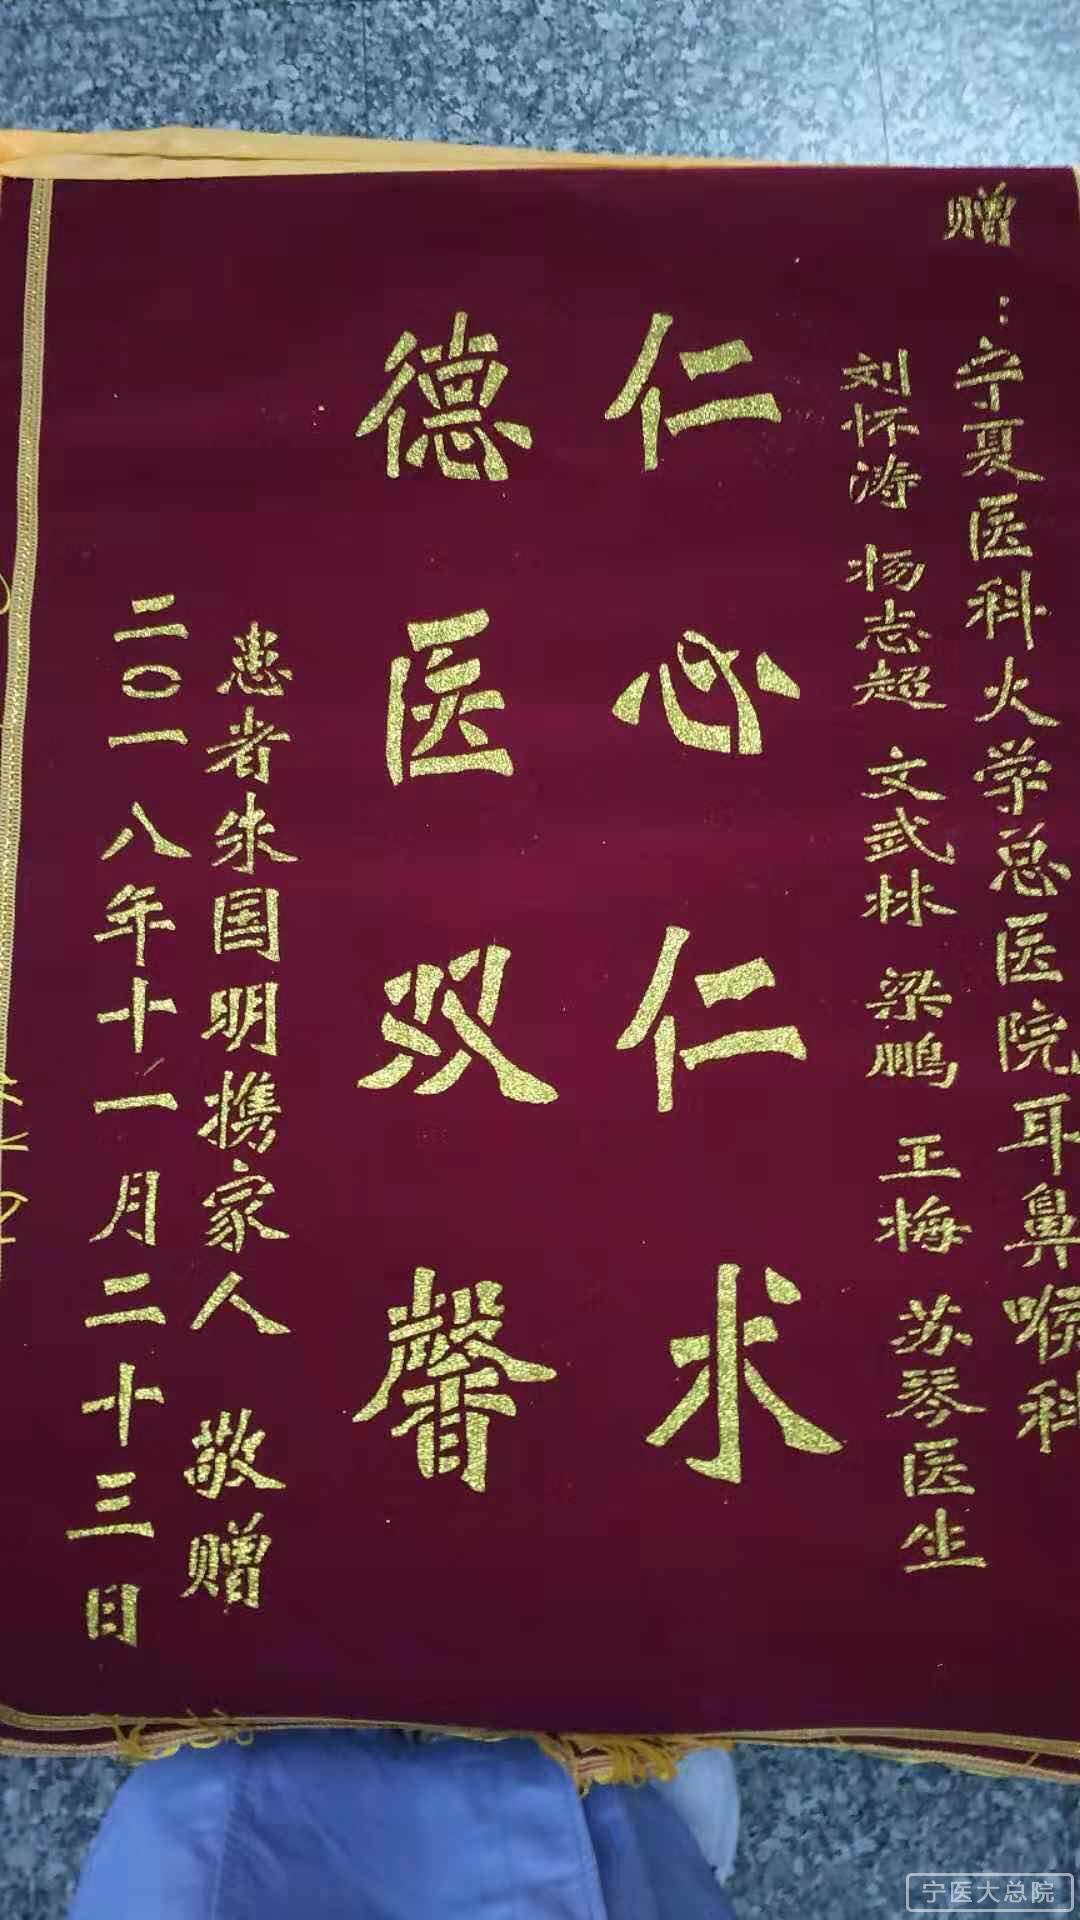 赠：宁夏医科大学总医院耳鼻喉科
刘怀涛 杨志超 文武林 梁鹏 王梅 苏琴医生
仁心仁术
德医双馨
患者朱国明携家人 敬赠
二〇一八年十一月二十三日
宁医大总院